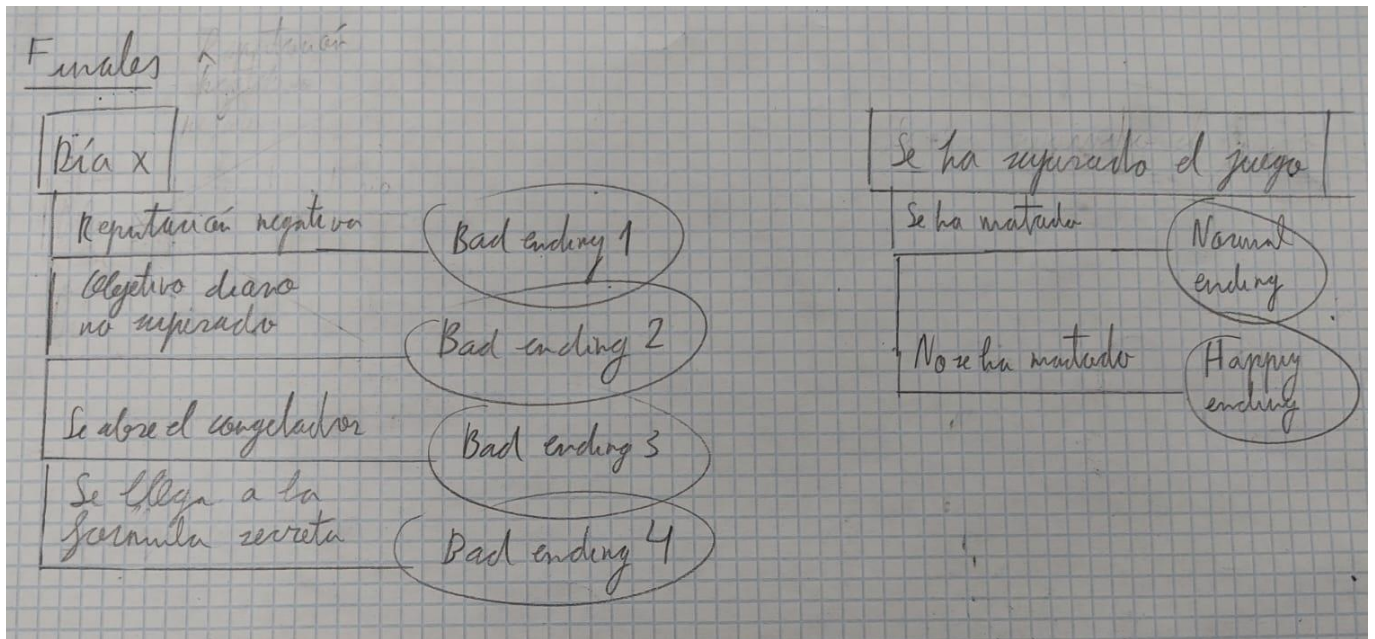 Finales
Día x
Reputación negativa
Bad ending 1
Objetivo diario
no superado
Bad ending 2
Se abre el congelador
Bad ending 3
Se llega a la
formula secreta
Bad ending 4
Se ha superado el juego
Se ha matado
Normal
ending
No se ha matado
Happy
ending